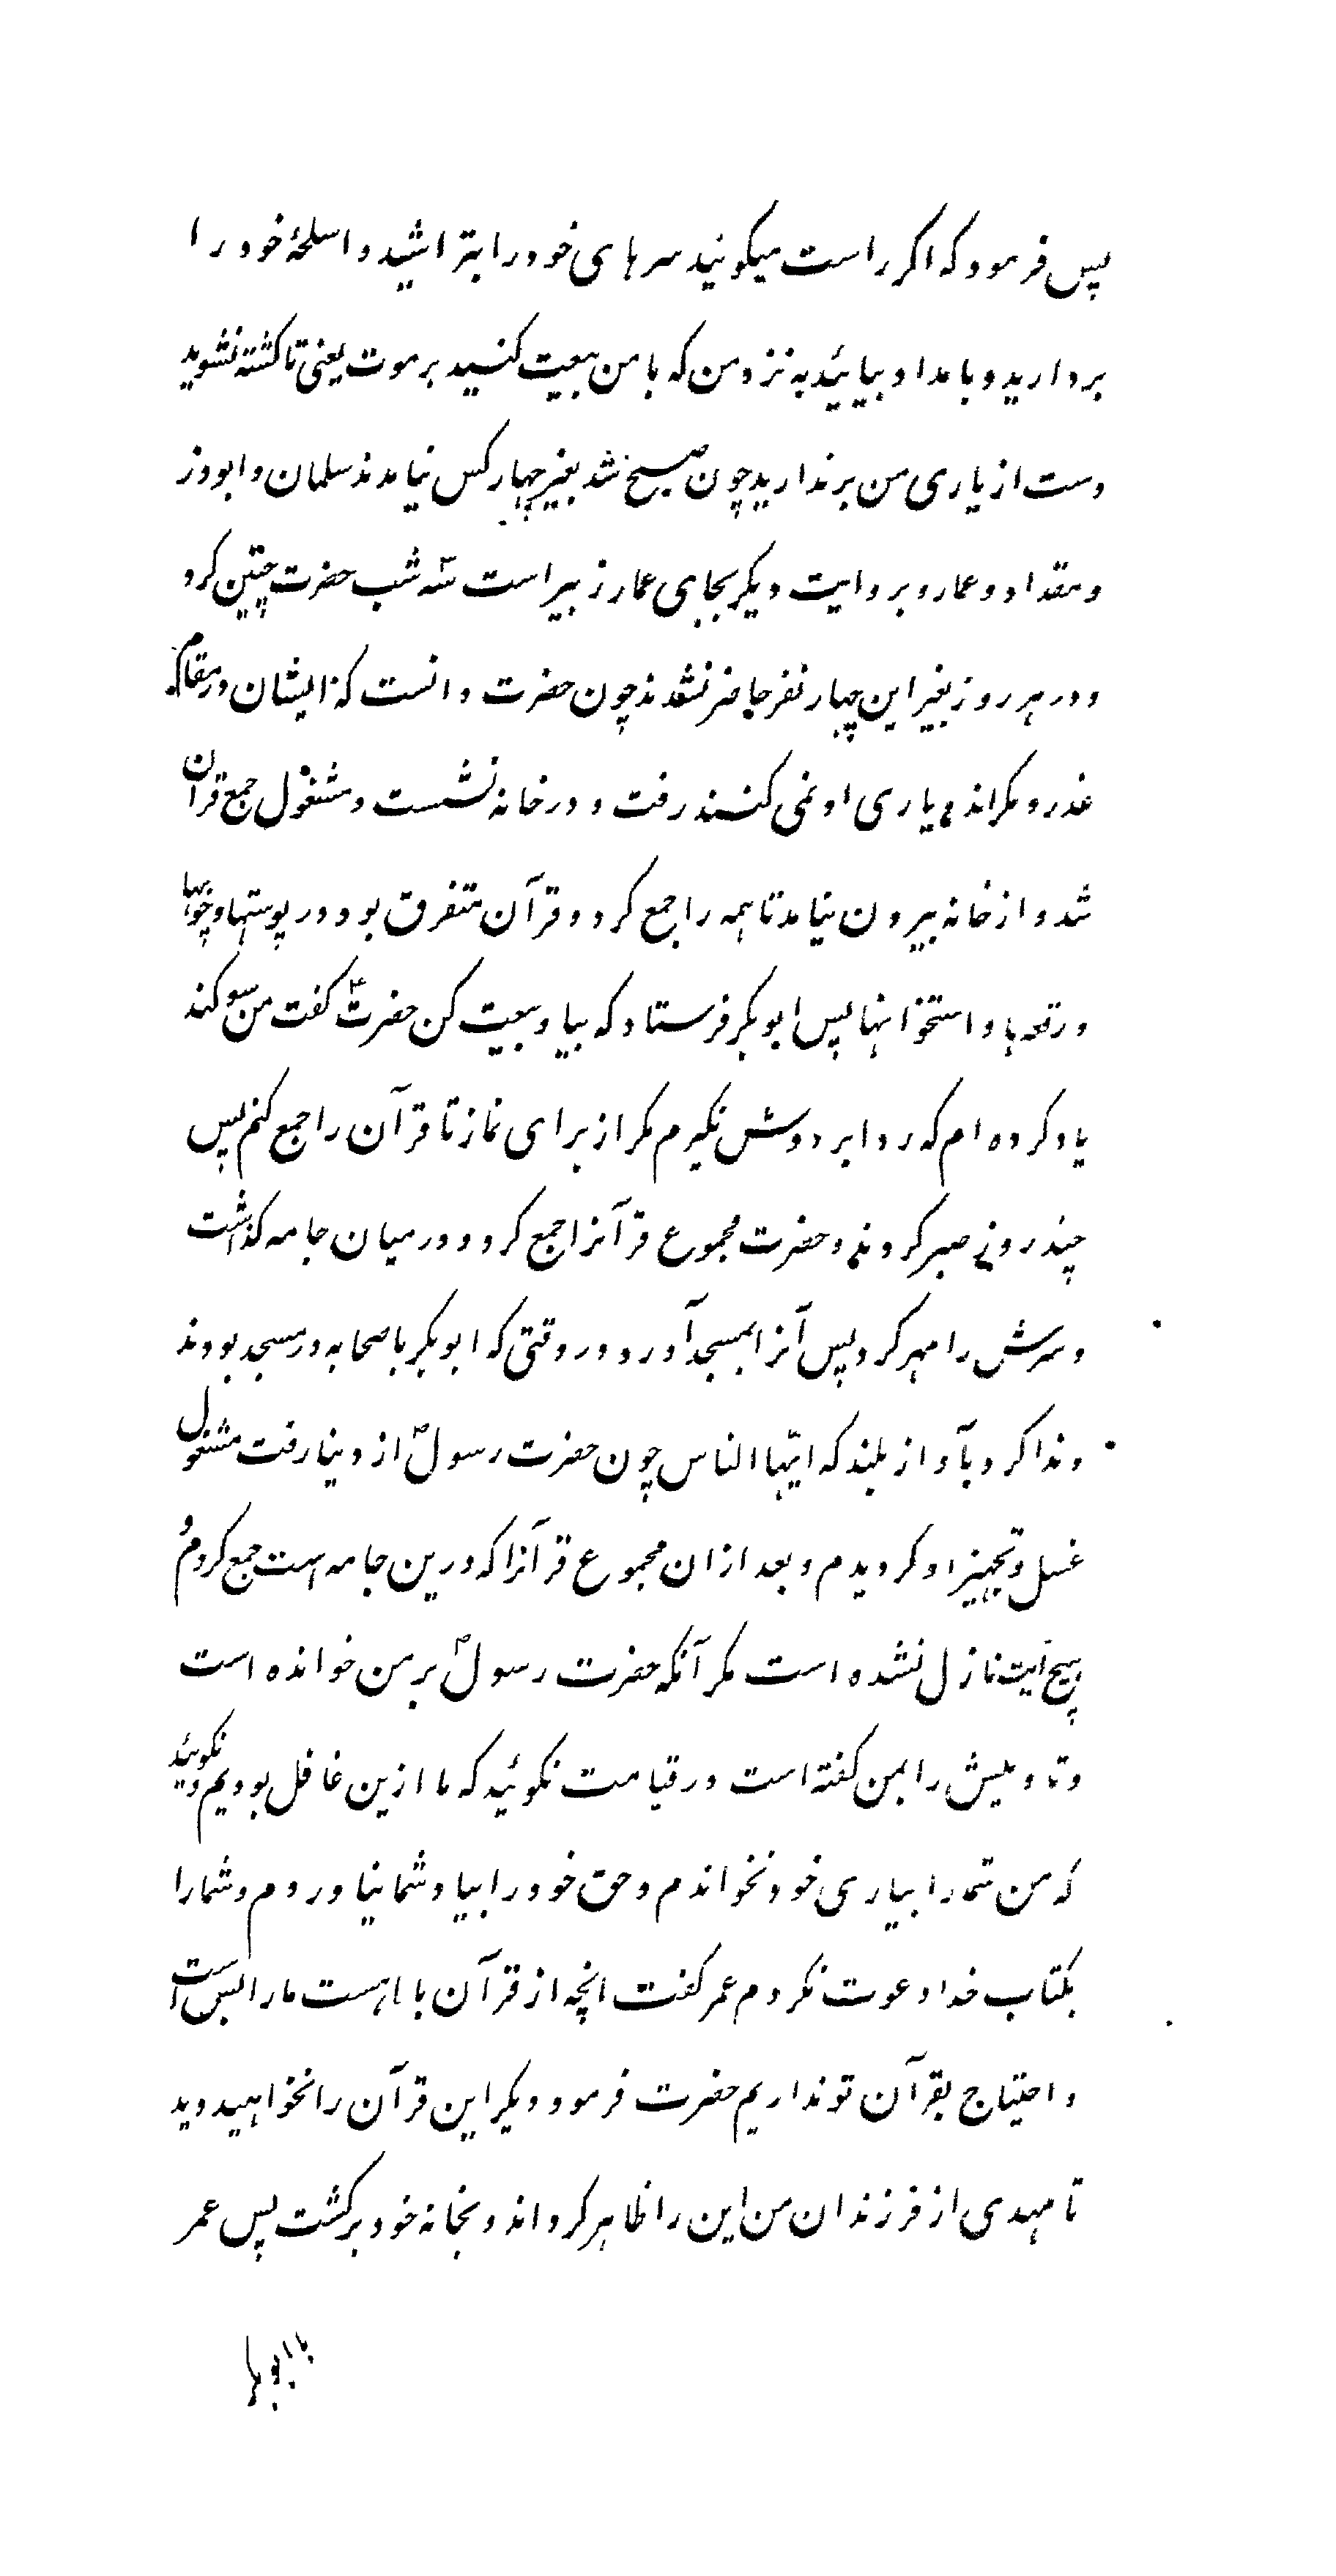 پس فرمود که اکر راست میکوئید سرهای خود را بتراشید و اسلحهٔ خود را
بردارید و بامداد بیائید به نزد من که با من بیعت کنسید بر موت یعنی تا کشته نشوید
دست از یاری من برندارید چون صبح شد بغیر چهار کس نیامدند سلمان و ابوذر
و مقداد و عمار و بروایت دیکر بجای عمار زبیر است سه شب حضرت چنین کرد
و در هر روز بغیر این چهار نفر حاضر نشدند چون حضرت دانست که ایشان در مقام
غدر و مکراند و یاری او نمی کنند رفت و در خانه نشست و مشغول جمع قرآن
شد و از خانه بیرون نیامد تا همه را جمع کرد و قرآن متفرق بود در پوستها و چوبها
و رقعه ها و استخوانها پس ابوبکر فرستاد که بیا و بیعت کن حضرتؑ کفت من سوکند
یاد کرده ام که ردا بر دوش نکیرم مکر از برای نماز تا قرآن را جمع کنم پس
چند روزی صبر کردند و حضرت مجموع قرآنرا جمع کرد و در میان جامه کذاشت
و سرش را مهر کرد پس آنرا بمسجد آورد در وقتی که ابوبکر با صحابه در مسجد بودند
و ندا کرد بآواز بلند که ایّها الناس چون حضرت رسولؐ از دنیا رفت مشغول
غسل و تجهیز او کردیدم و بعد ازان مجموع قرآنرا که درین جامه است جمع کردم و
هیچ آیت نازل نشده است مکر آنکه حضرت رسولؐ بر من خوانده است
و تاویلش را بمن کفته است در قیامت نکوئید که ما ازین غافل بودیم و نکوئید
که من شما را بیاری خود نخواندم و حق خود را بیاد شما نیاوردم و شما را
بکتاب خدا دعوت نکردم عمر کفت انچه از قرآن با ما هست ما را بس است
و احتیاج بقرآن تو نداریم حضرت فرمود دیکر این قرآن را نخواهید دید
تا مهدی از فرزندان من این را ظاهر کرداند و بخانه خود برکشت پس عمر